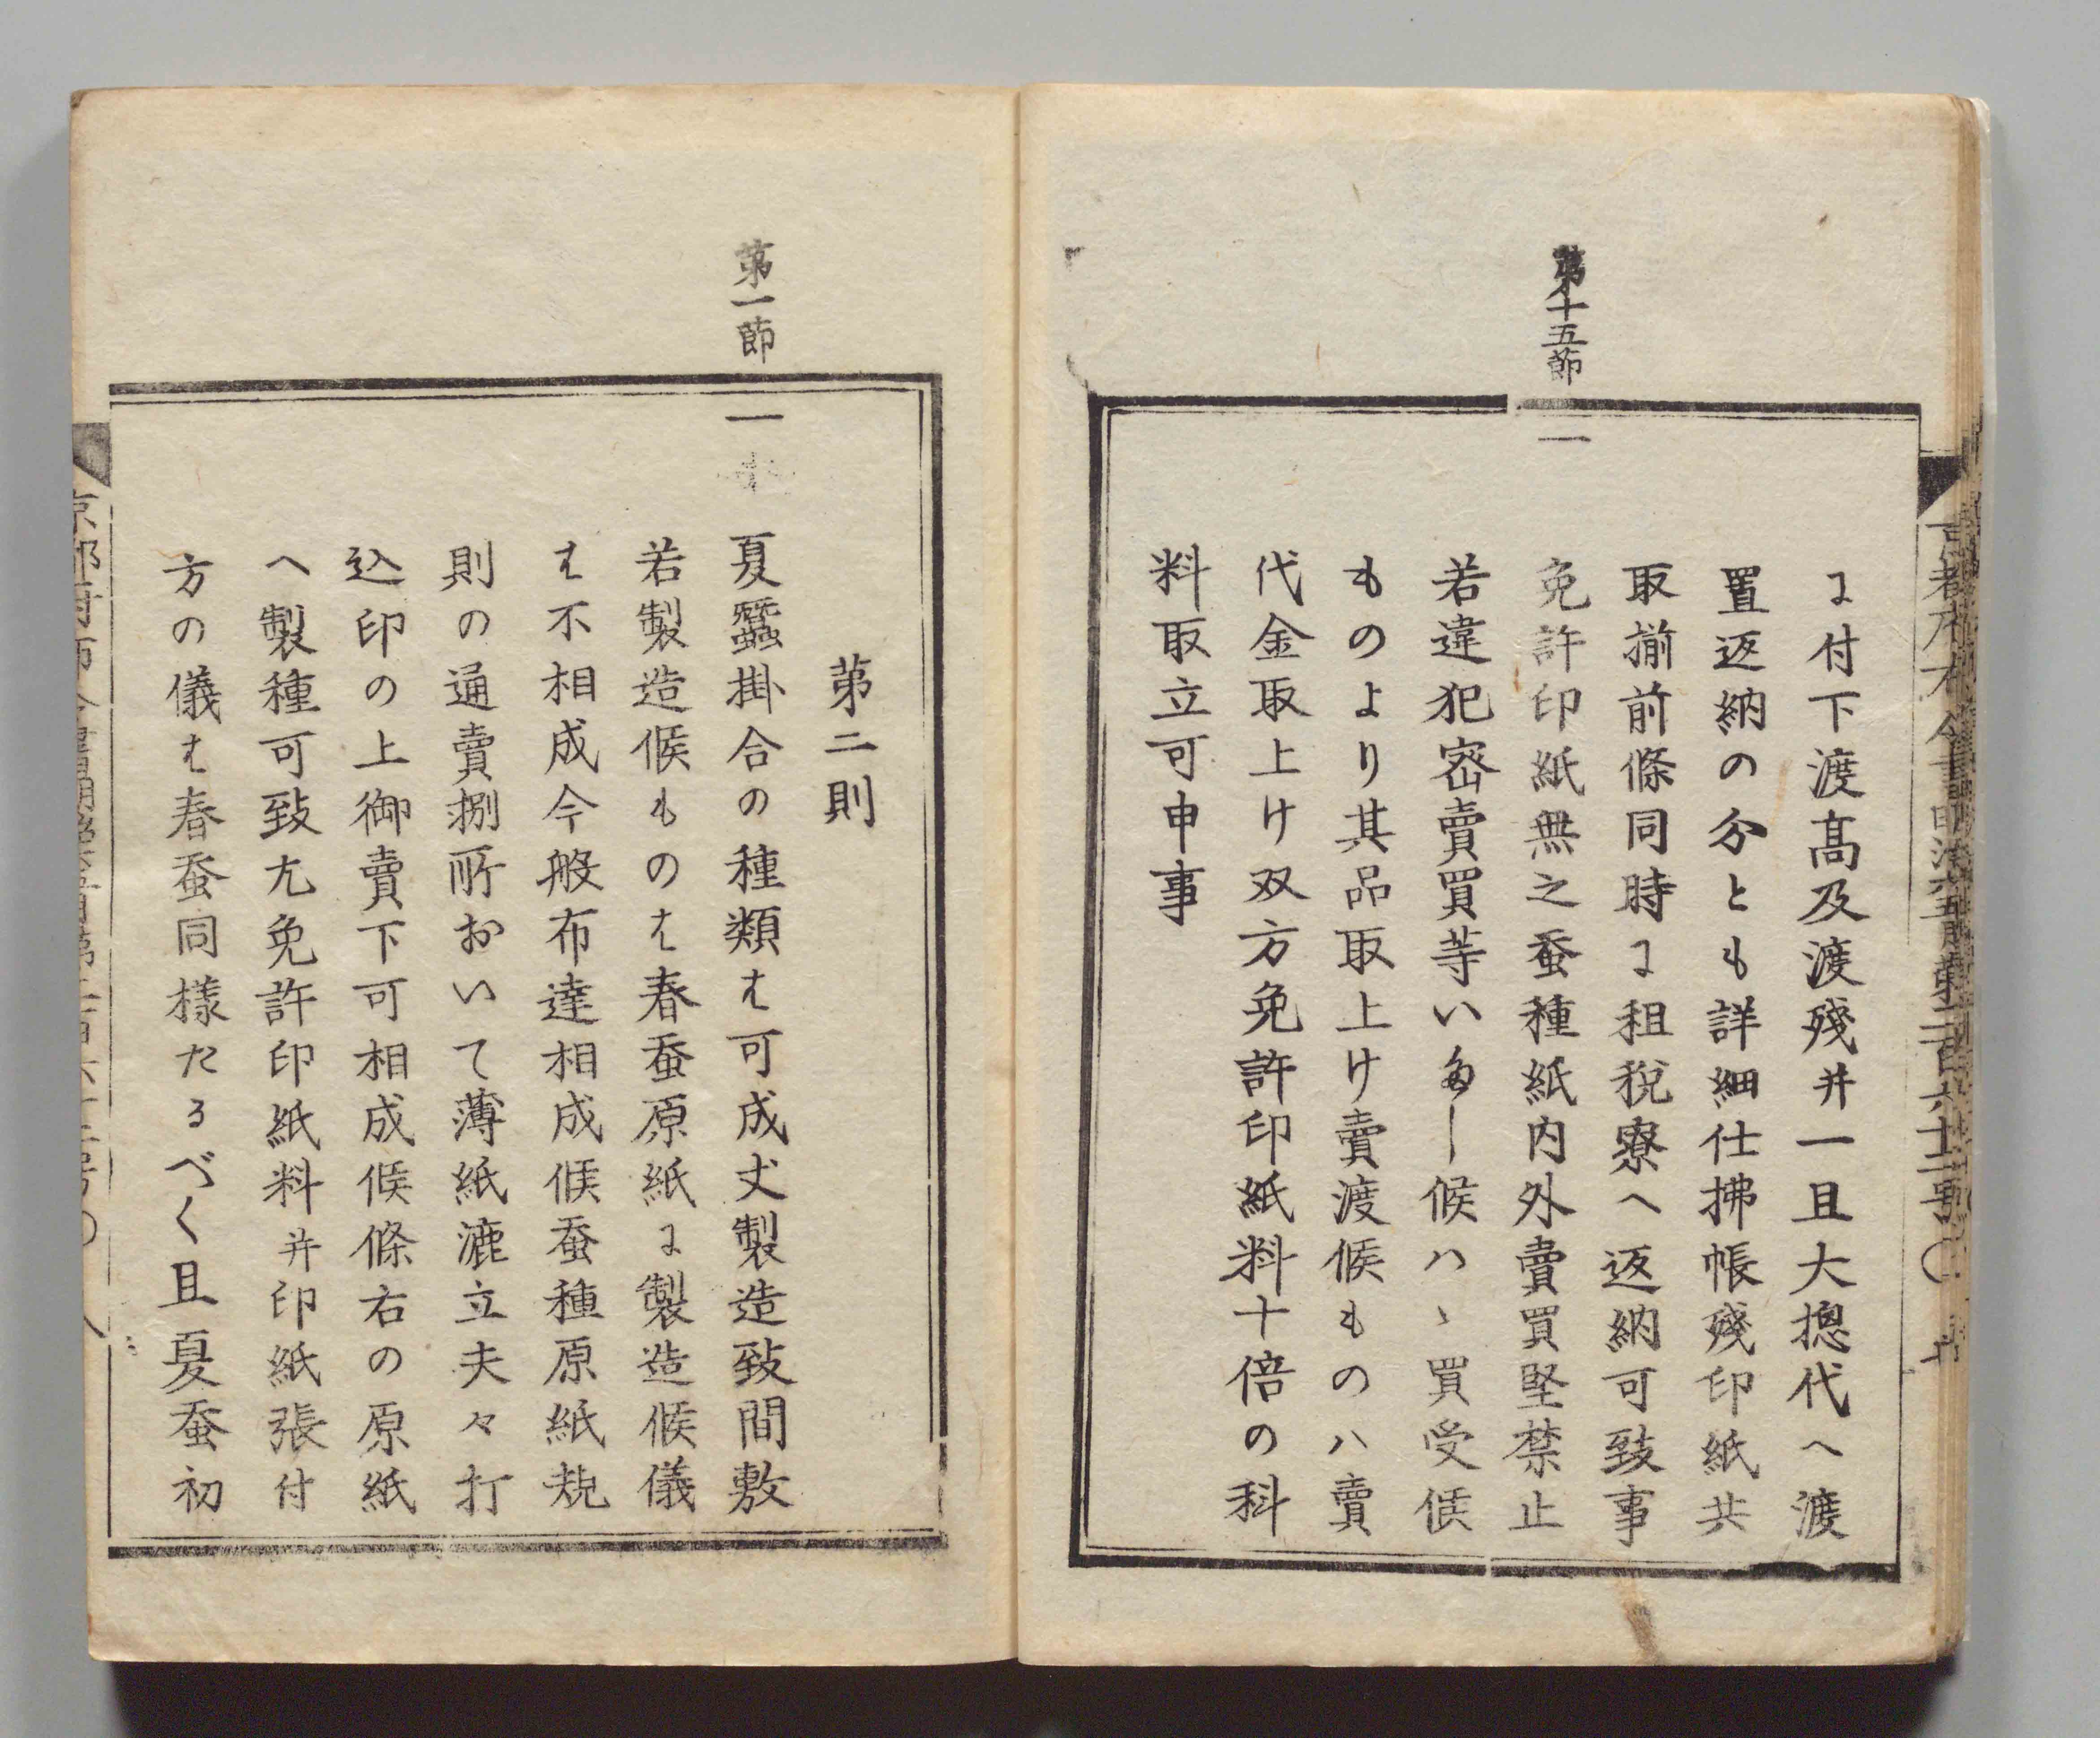 ニ付下渡髙及渡殘并一且大摠代へ渡
置返納の分とも詳細仕拂帳殘印紙共
取揃前條同時ニ租税寮へ返納可致事
第十五節
一
免許印紙無之蚕種紙内外賣買堅禁止
若違犯密賣買等いたし候ハヽ買受候
ものより其品取上け賣渡候ものハ賣
代金取上け双方免許印紙料十倍の科
料取立可申事
第二則
第一節
一
夏蠶掛合の種類は可成丈製造致間敷
若製造候ものは春蚕原紙ニ製造候儀
は不相成今般布達相成候蚕種原紙規
則の通賣捌所おいて薄紙漉立夫々打
込印の上御賣下可相成候條右の原紙
へ製種可致尤免許印紙料并印紙張付
方の儀は春蚕同様たるべく且夏蚕初